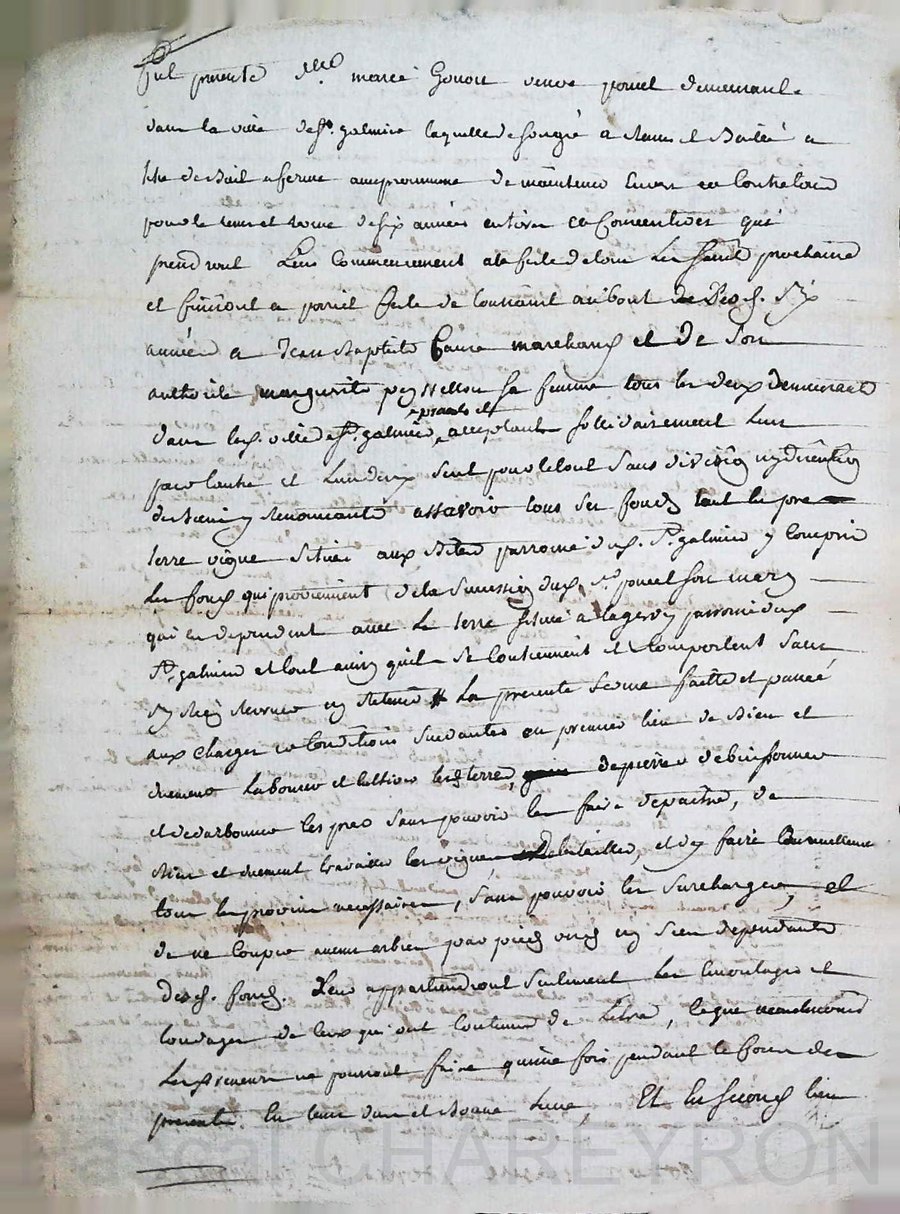 fut presente marie Gonon veuve poncet demeurant
dans la ville de St. galmier laquelle de son gré a remis et Baillé a
titre de Bail a ferme avec promesse de maintenir envers et contre tous
pour le tems et terme de six années entieres et consecutives qui
prendront Leur Commencement a la fete de tous Les Saints prochaine
et finiront a pareil fete de toussaint au bout desd. Six
années a Jean Baptiste faure marchand et de Son
authorité margueritte peysselon sa femme tous les deux demeurants
dans lad. ville de St. galmier, presents et acceptants sollidairement Lun
pour Lautre et Lun deux seul pour le tout Sans division ny discution
y renonceants assavoir tous ses fonds tant en pre
terre vigne Situés aux parroisse dud. St. galmier y Compris
Les fonds qui proviennent de la Sucession dud. Sr. poncet son mary
qui en dependent avec La terre Située a parroisse dud.
St. galmier et tout ainsy quil Se Contiennent et Comportent Sans
en Rien Reserver ny Retenir La presente ferme faitte et passée
aux charges et Conditions Suivantes en premier lieu de Bien et
duement Labourer et cultiver les terres, de
et les prés Sans pouvoir les faire depaitre, de
Bien et duement travailler les vignes, et dy faire annuellement
tous les provins necessaires, Sans pouvoir les Surcharger, et
de ne Couper aucun arbre par pied vif ny Sec dependants
desd. fonds. Leur appartiendront Seulement Les Emontages et
tondages de Ceux qui ont Coutume de Letre, ce que neanmoins
Les preneurs ne pourront faire qu'une fois pendant le Cours des
presentes. En leur tems et Bonne Lune, Et en second lieu
Pascal CHAREYRON